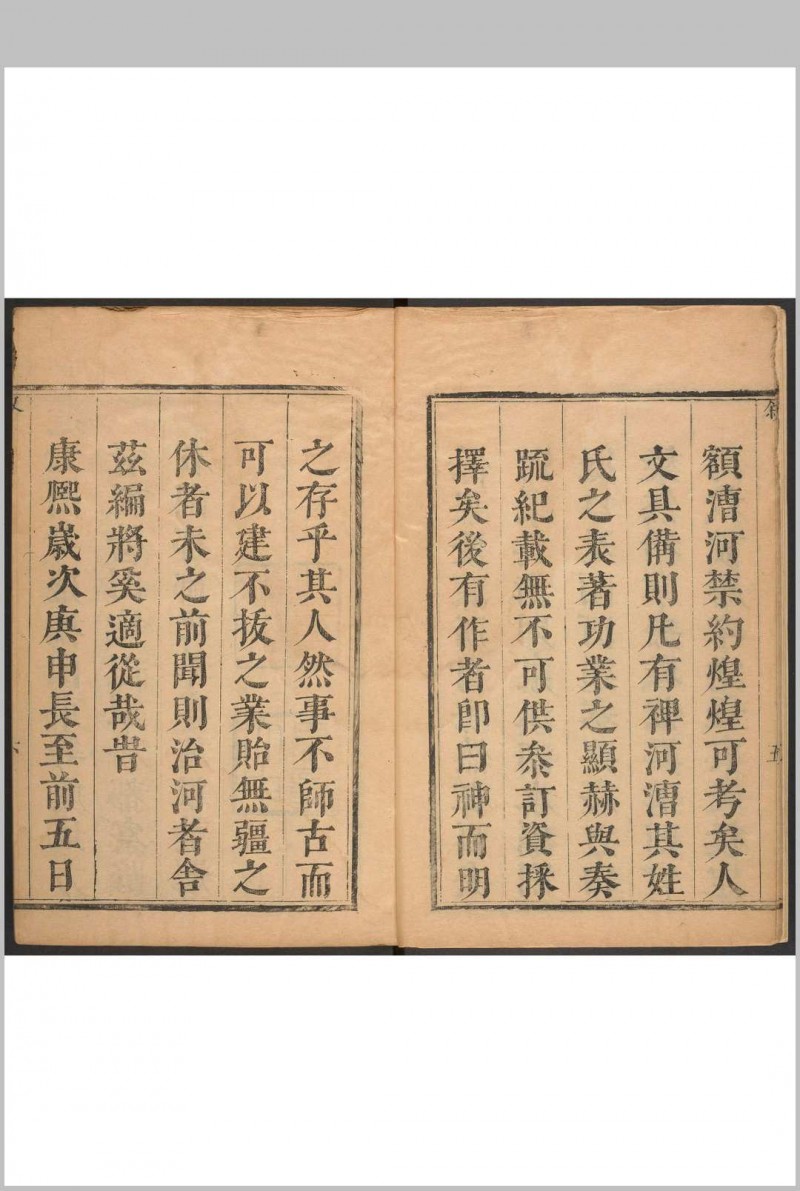 額漕河禁約煌煌可考矣人
文具備則凡有裨河漕其姓
氏之表著功業之顯赫與奏
疏紀載無不可供叅訂資採
擇矣後有作者卽曰神而明
之存乎其人然事不師古而
可以建不拔之業貽無疆之
休者未之前聞則治河者舍
茲編將奚適從哉旹
康熙歲次庚申長至前五日